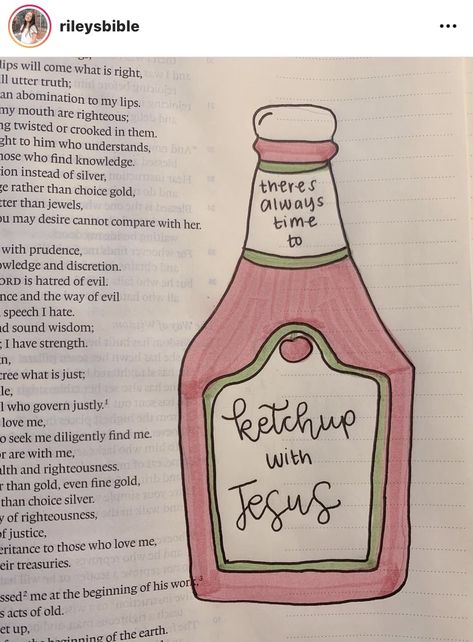 rileysbible
lips will come what is right,
ll utter truth;
an abomination to my lips.
my mouth are righteous;
ng twisted or crooked in them.
ght to him who understands,
hose who find knowledge.
tion instead of silver,
ge rather than choice gold,
tter than jewels,
ou may desire cannot compare with her.
with prudence,
owledge and discretion.
ORD is hatred of evil.
nce and the way of evil
speech I hate.
nd sound wisdom;
; I have strength.
n,
cree what is just;
le,
l who govern justly.¹
love me,
o seek me diligently find me.
or are with me,
alth and righteousness.
r than gold, even fine gold,
than choice silver.
y of righteousness,
of justice,
eritance to those who love me,
eir treasuries.
ssed² me at the beginning of his work,³
s acts of old.
et up,
the beginning of the earth.
theres
always
time
to
ketchup
with
Jesus